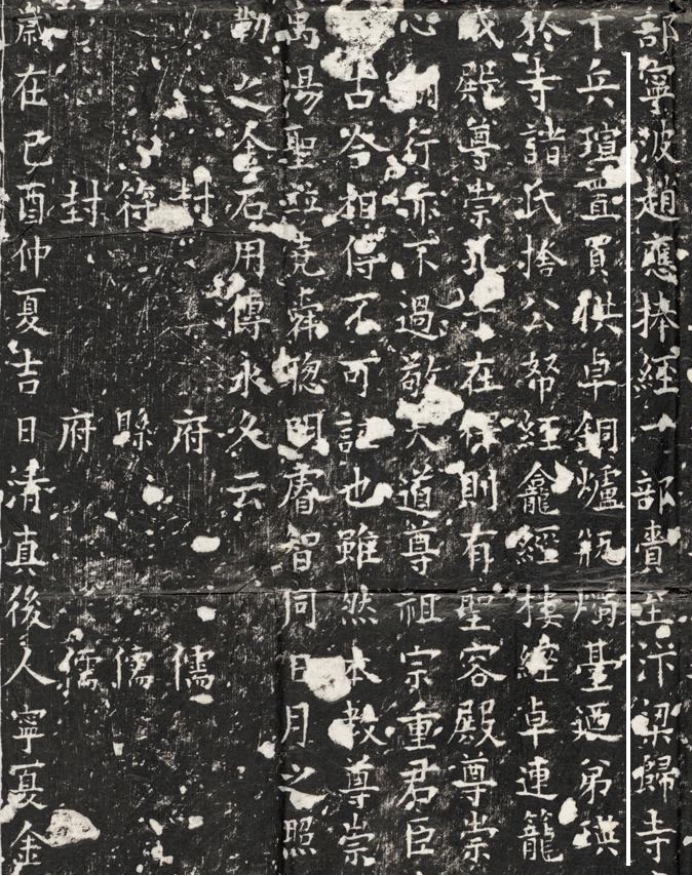 部寧波趙應捧經一部賫至汴梁歸寺
千兵瑄置買供卓銅爐瓶燭臺迺弟瑛
於寺諸氏捨公帑經龕經樓經卓連籠
成殿尊崇孔子在釋則有聖容殿尊崇
心制行亦不過敬天道尊祖宗重君臣
古今相傳不可誣也雖然本教尊崇
禹湯聖並堯舜聰明睿智同日月之照
勒之金石用傳永久云
封府儒
符縣儒
封府儒
歲在己酉仲夏吉日清真後人寧夏金